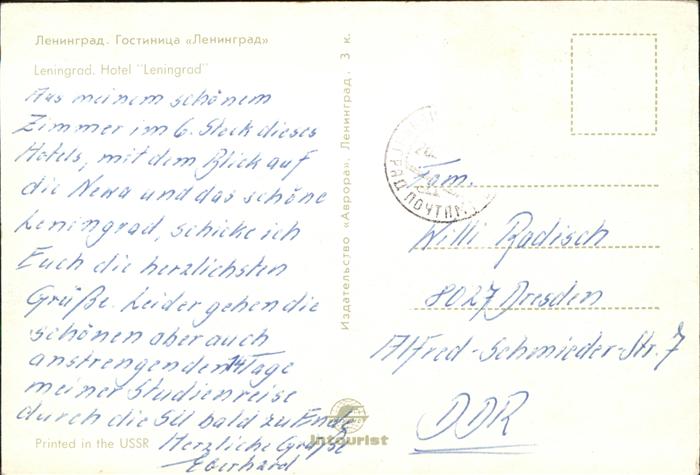 Ленинград. Гостиница «Ленинград»
Leningrad. Hotel "Leningrad"
Aus meinem schönem
Zimmer im 6. Stock dieses
Hotels, mit dem Blick auf
die Newa und das schöne
Leningrad, schicke ich
Euch die herzlichsten
Grüße. Leider gehen die
schönen aber auch
anstrengenden 14 Tage
meiner Studienreise
durch die SU bald zu Ende
Herzliche Grüße
Eberhard
Printed in the USSR
Intourist
Издательство «Аврора». Ленинград. 3 к.
ГРАД ПОЧТАМТ
Fam.
Willi Radisch
8027 Dresden
Alfred-Schmieder-Str. 7
DDR